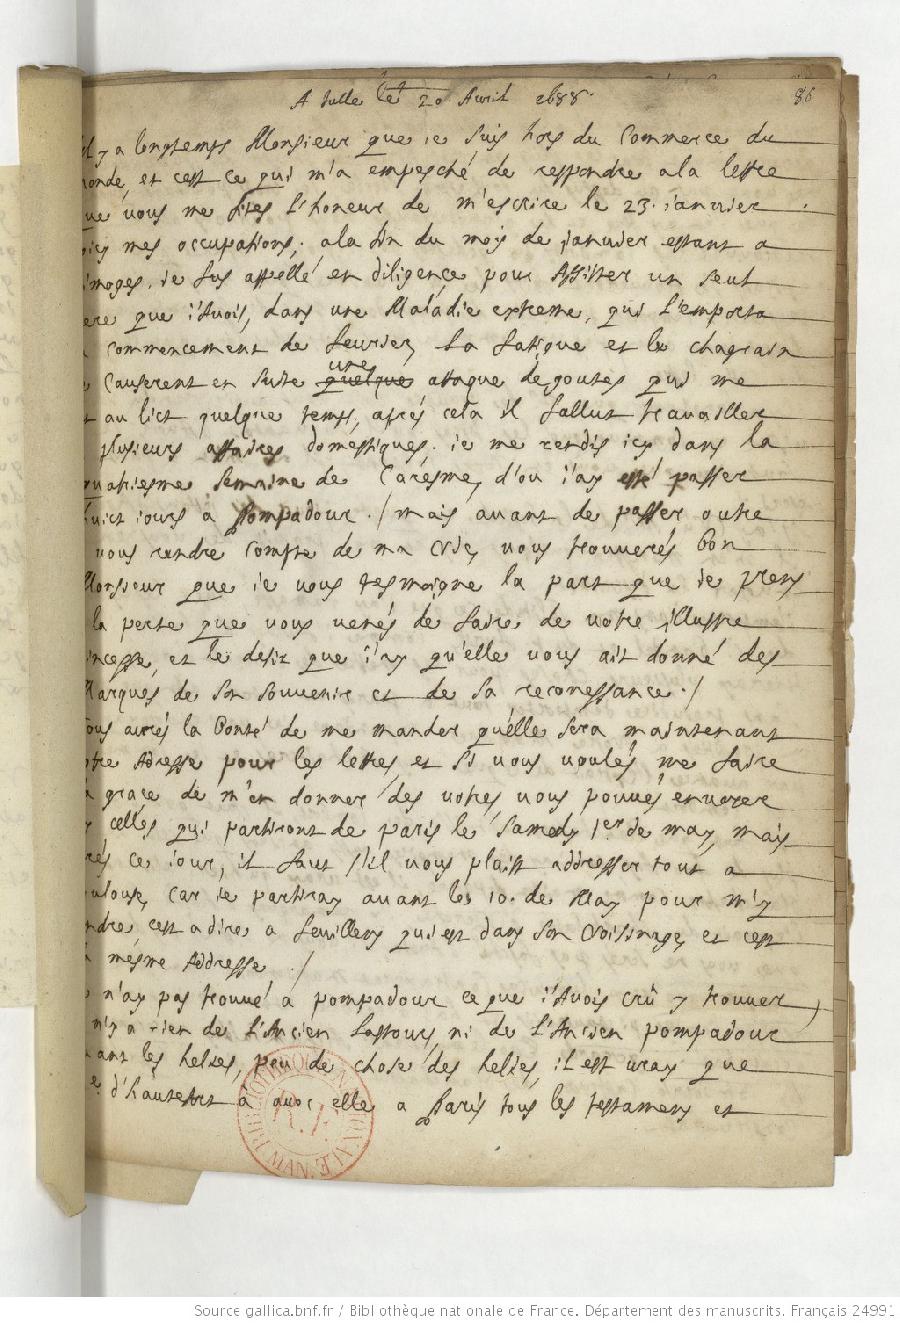 A tulle le 20 Avril 1688.
86
Il y a longtemps Monsieur que ie suis hors du Commerce du
monde, et cest ce qui m'a empesché de respondre a la lettre
que vous me fites l'honeur de m'escrire le 23. ianvier
mes occupations, a la fin du mois de ianvier estant a
Limoges. ie fus appellé en diligence pour Assister un seul
frere que i'Avois, dans une Maladie extreme, qui l'emporta
au commencement de fevrier, La fatigue et le chagrain
me Causerent en suite quelque une attaque de goutes qui me
au lict quelque temps, aprés cela il fallut travailler
a plusieurs affaires domestiques. ie me rendis icy dans la
quatriesme semaine de Caresme, d'ou i'ay esté passer
huict iours a Pompadour ./ mais avant de passer outre
a vous rendre compte de ma vie, vous trouverés bon
Monsieur que ie vous tesmoigne la part que ie prens
a la perte que vous venés de faire de votre illustre
princesse, et le desir que i'ay qu'elle vous ait donné des
Marques de son souvenir et de sa reconessance ./
Vous aurés la Bonté de me mander qu'elle sera maintenant
votre Adresse pour les lettres, et si vous voulés me faire
la grace de m'en donner des votres vous pouvés envoyer
icy celles qui partiront de paris le Samedy 1er de may, mais
aprés ce iour, il faut s'il vous plaist addresser tout a
toulouse, car ie partiray avant les 10. de May pour m'y
rendre, cest a dire a feuillens qui est dans son voisinage, et cest
la mesme Addresse ./
Ie n'ay pas trouvé a pompadour ce que i'Avois crû y trouver
il n'y a rien de l'Ancien Lastours, ni de l'Ancien pompadour
avant les helies, peu de chose des helies, il est vray que
Me d'hautefort a avec elle a Paris tous les testamens et
BIBLIOTHEQUE NATIONALE MAN.
R.F.
Source gallica.bnf.fr / Bibliothèque nationale de France. Département des manuscrits. Français 24991